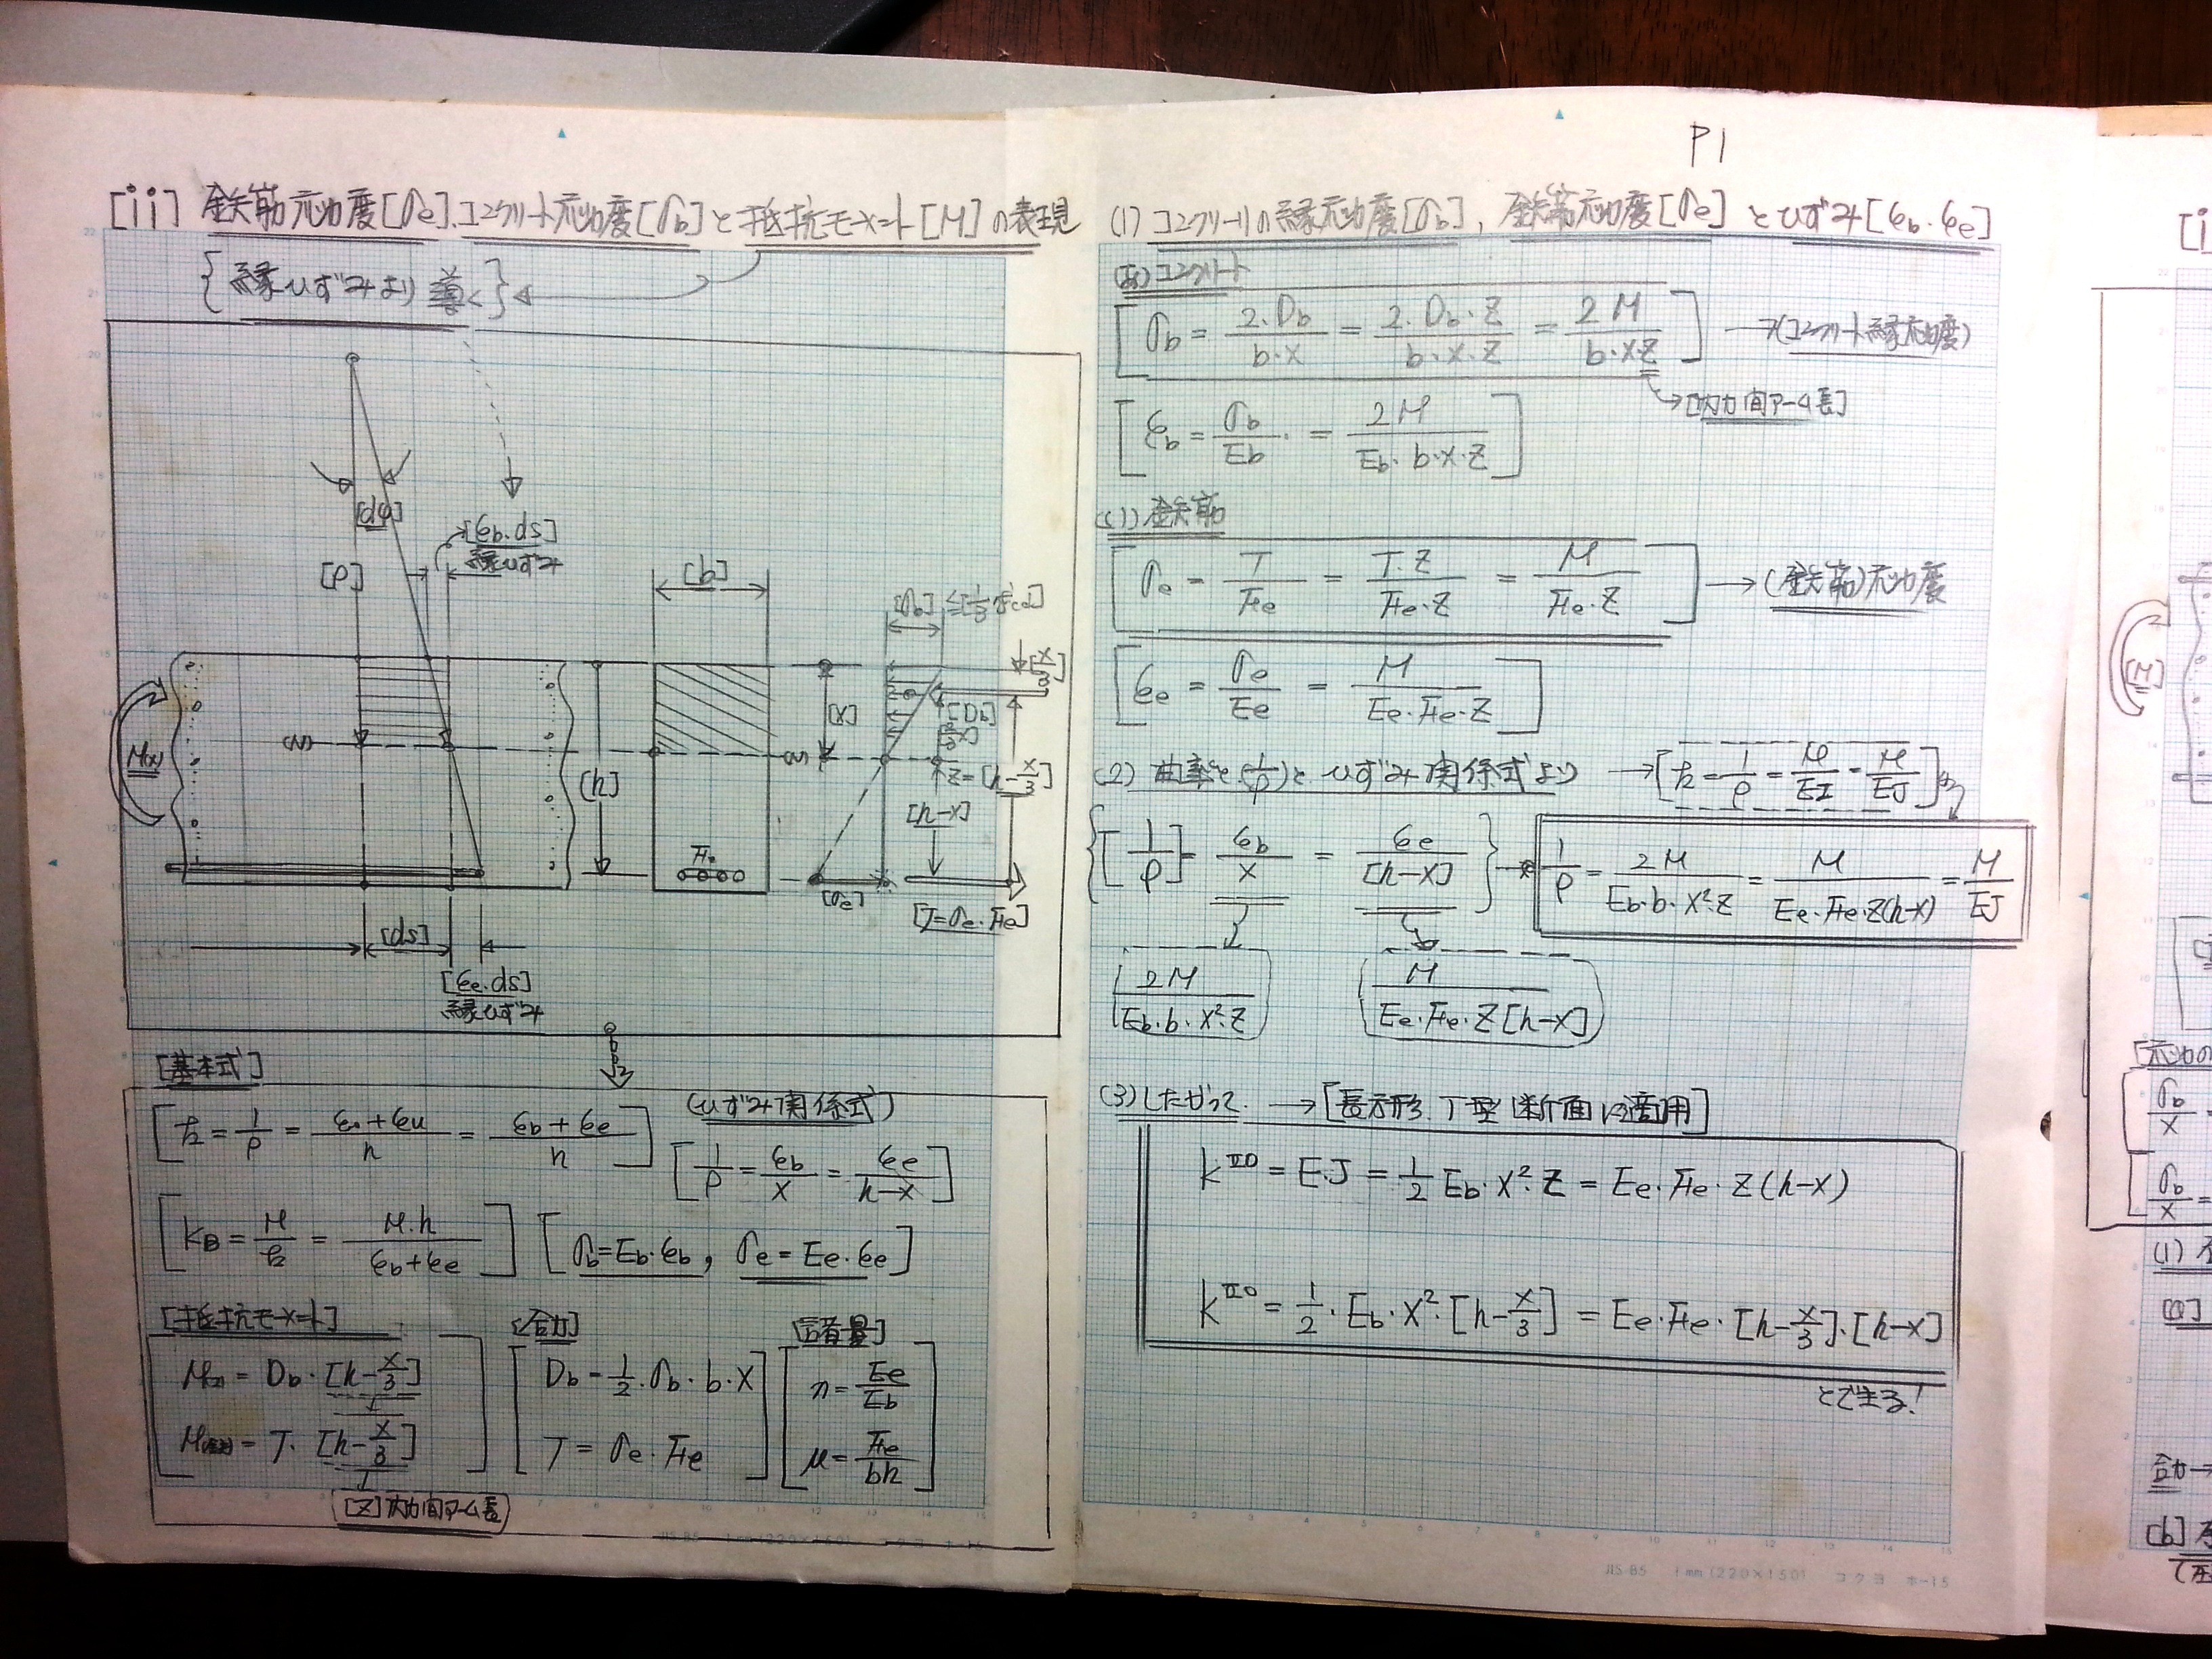 P1
[ii] 鉄筋応力度[σe]、コンクリート応力度[σb]と抵抗モーメント[M]の表現
{縁ひずみより導く}
[dφ]
[εb・ds]
縁ひずみ
[ρ]
[b]
[σb]
[x/3]
[x]
[Db]
M(x)
(N)
(N)
[h]
z=[h-x/3]
[h-x]
Fe
[σe]
[T=σe・Fe]
[ds]
[εe・ds]
縁ひずみ
[基本式]
(ひずみ関係式)
[1/ρ = εb/x = εe/h-x]
[KB = M/k = M・h/εb+εe] [σb=Eb・εb, σe=Ee・εe]
[抵抗モーメント] [合力] [諸量]
= Db・[h-x/3]
= T・[h-x/3]
[Db=1/2・σb・b・x
T=σe・Fe]
[n=Ee/Eb
μ=Fe/bh]
[z]内力間アーム長
(1) コンクリートの縁応力度[σb], 鉄筋応力度[σe]とひずみ[εb・εe]
(あ)コンクリート
[σb = 2・Db/b・x = 2・Db・z/b・x・z = 2M/b・x・z] →(コンクリート縁応力度)
→[内力間アーム長]
[εb = σb/Eb = 2M/Eb・b・x・z]
(い)鉄筋
[σe = T/Fe = T・z/Fe・z = M/Fe・z] →(鉄筋)応力度
[εe = σe/Ee = M/Ee・Fe・z]
(2) 曲率と(1/ρ)と ひずみ関係式より →[k=1/ρ=M/EI=M/EJ]
{[1/ρ] = εb/x = εe/[h-x]} → 1/ρ = 2M/Eb・b・x²・z = M/Ee・Fe・z(h-x) = M/EJ
2M/Eb・b・x²・z
M/Ee・Fe・z[h-x]
(3) したがって →[長方形、T型断面に適用]
k^II0 = E・J = 1/2 Eb・x²・z = Ee・Fe・z(h-x)
k^II0 = 1/2・Eb・x²・[h-x/3] = Ee・Fe・[h-x/3]・[h-x]
とできる!
[M]
σb/x
σb/x =
(1)
[a]
合力→
[b]